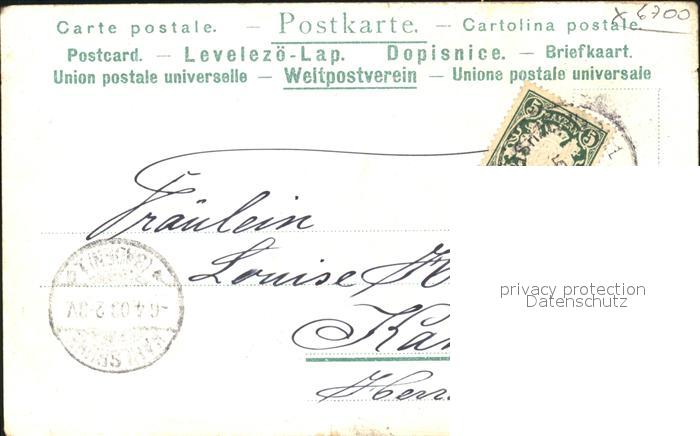 x 6700
Carte postale. — Postkarte. — Cartolina postale.
Postcard. — Levelezö-Lap. Dopisnice. — Briefkaart.
Union postale universelle — Weltpostverein — Unione postale universale
5 BAYERN 5
Fräulein
Louise
privacy protection
Datenschutz
Herr